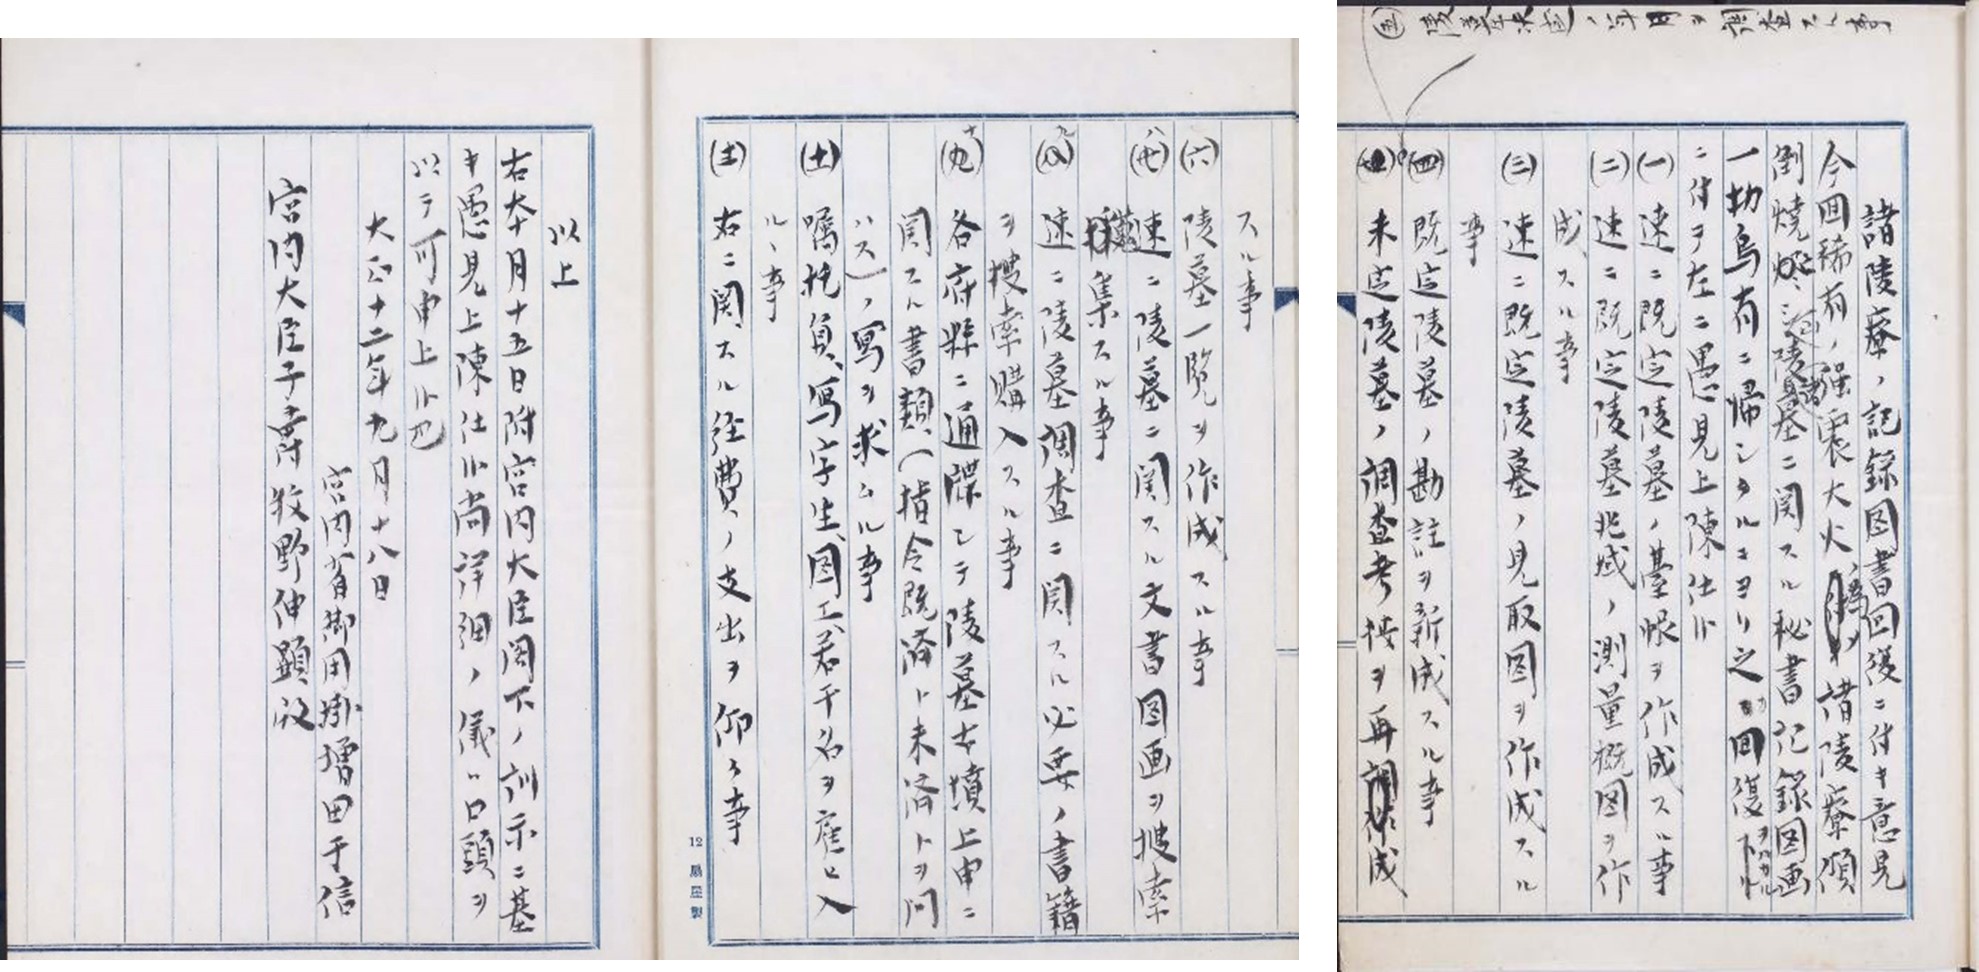 諸陵寮ノ記録図書回復ニ付キ意見
今回稀有ノ強震大火ノ為メ諸陵寮傾
倒焼燬シ陵墓ニ関スル秘書記録図画
一切烏有ニ帰シタルニヨリ之回復
ニ付ヲ左ニ愚見上陳仕候
(一)速ニ既定陵墓ノ台帳ヲ作成スル事
(二)速ニ既定陵墓兆域ノ測量概図ヲ作
成スル事
(三)速ニ既定陵墓ノ見取図ヲ作成スル
事
(四)既定陵墓ノ勘註ヲ新成スル事
(五)陵墓決定ノ年月ヲ調査スル事
未定陵墓ノ調査考按ヲ再成
スル事
(六)陵墓一覧ヲ作成スル事
速ニ陵墓ニ関スル文書図画ヲ捜索
蒐集スル事
速ニ陵墓調査ニ関スル必要ノ書籍
ヲ捜索購入スル事
各府県ニ通牒シテ陵墓古墳上申ニ
関スル書類(指令既済ト未済トヲ問
ハス)ノ写ヲ求ムル事
嘱托員、写字生、図工、若干名ヲ雇ヒ入
ルヽ事
右ニ関スル経費ノ支出ヲ仰ク事
以上
右本月十五日附宮内大臣閣下ノ訓示ニ基
キ愚見上陳仕候尚詳細ノ儀ハ口頭ヲ
以テ可申上候也
大正十二年九月十八日
宮内省御用掛増田于信
宮内大臣子爵牧野伸顕殿
12